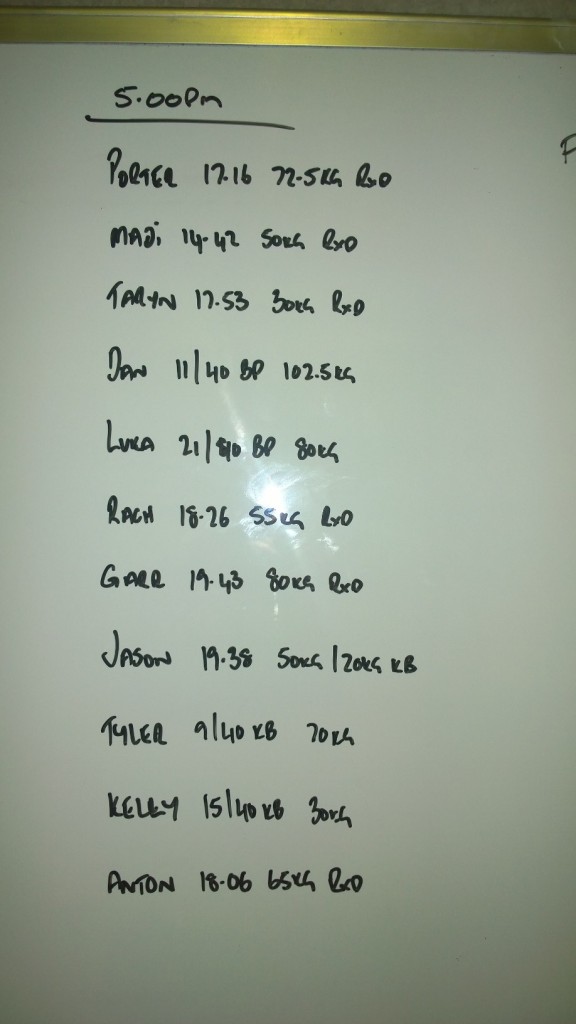 5.00Pm
PORTER 17.16 72.5KG RxD
MADi 14.42 50KG RxD
TARYN 17.53 30KG RxD
DAN 11/40 BP 102.5KG
LUKA 21/40 BP 80KG
RACH 18.26 55KG RxD
GARR 19.43 80KG RxD
JASON 19.38 50KG / 20KG KB
TYLER 9/40 KB 70KG
KELLY 15/40 KB 30KG
ANTON 18.06 65KG RxD